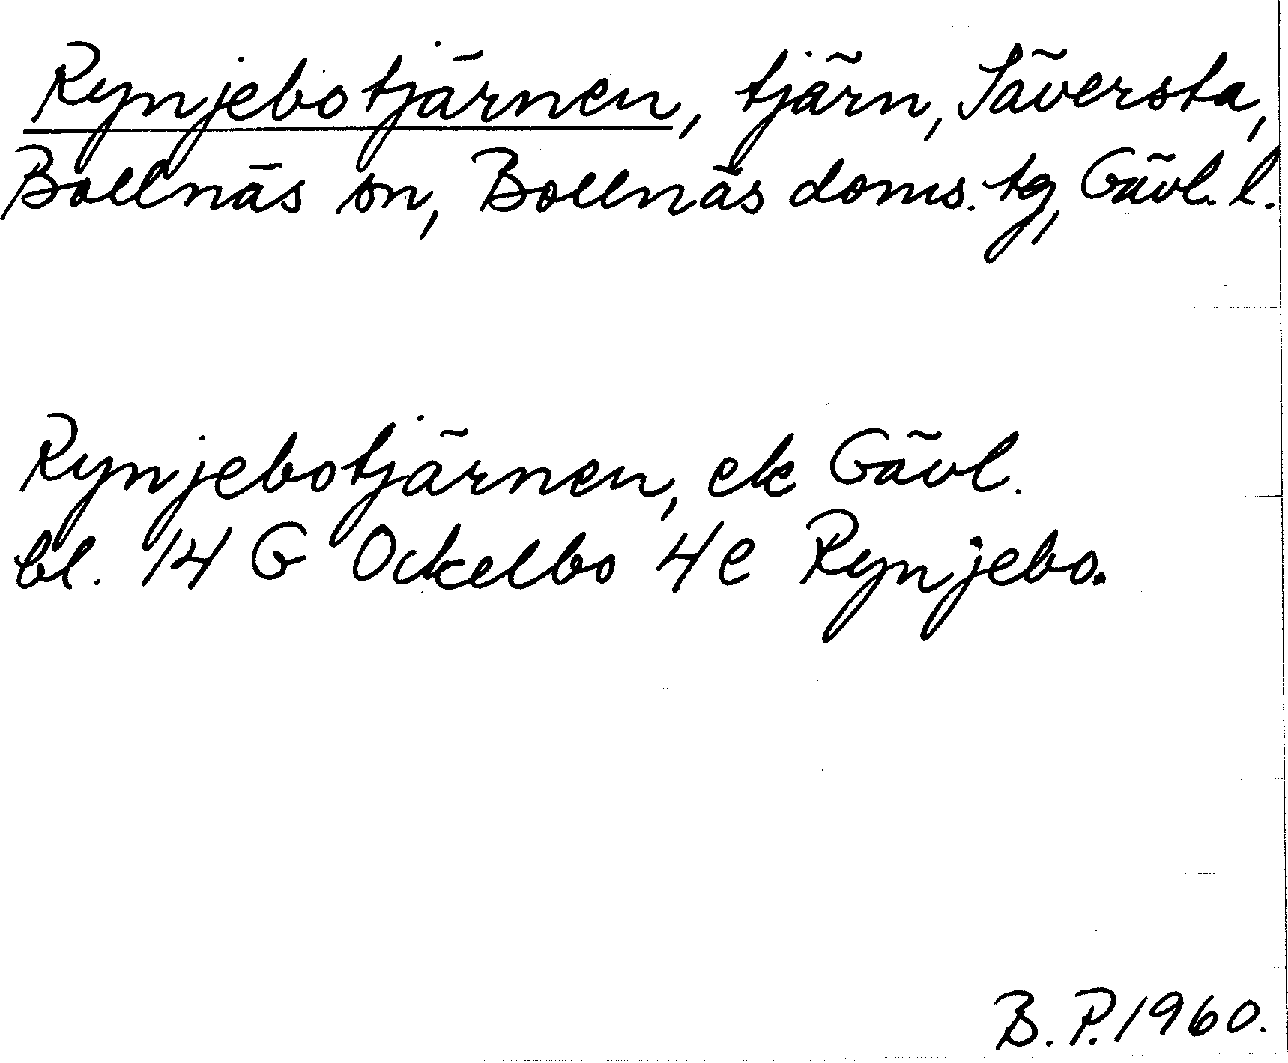 Rynjebotjärnen, tjärn, Säversta,
Bollnäs sn, Bollnäs doms. tg, Gävl. l.
Rynjebotjärnen, ek Gävl.
bl. 14 G Ockelbo 4 e Rynjebo.
B. P. 1960.